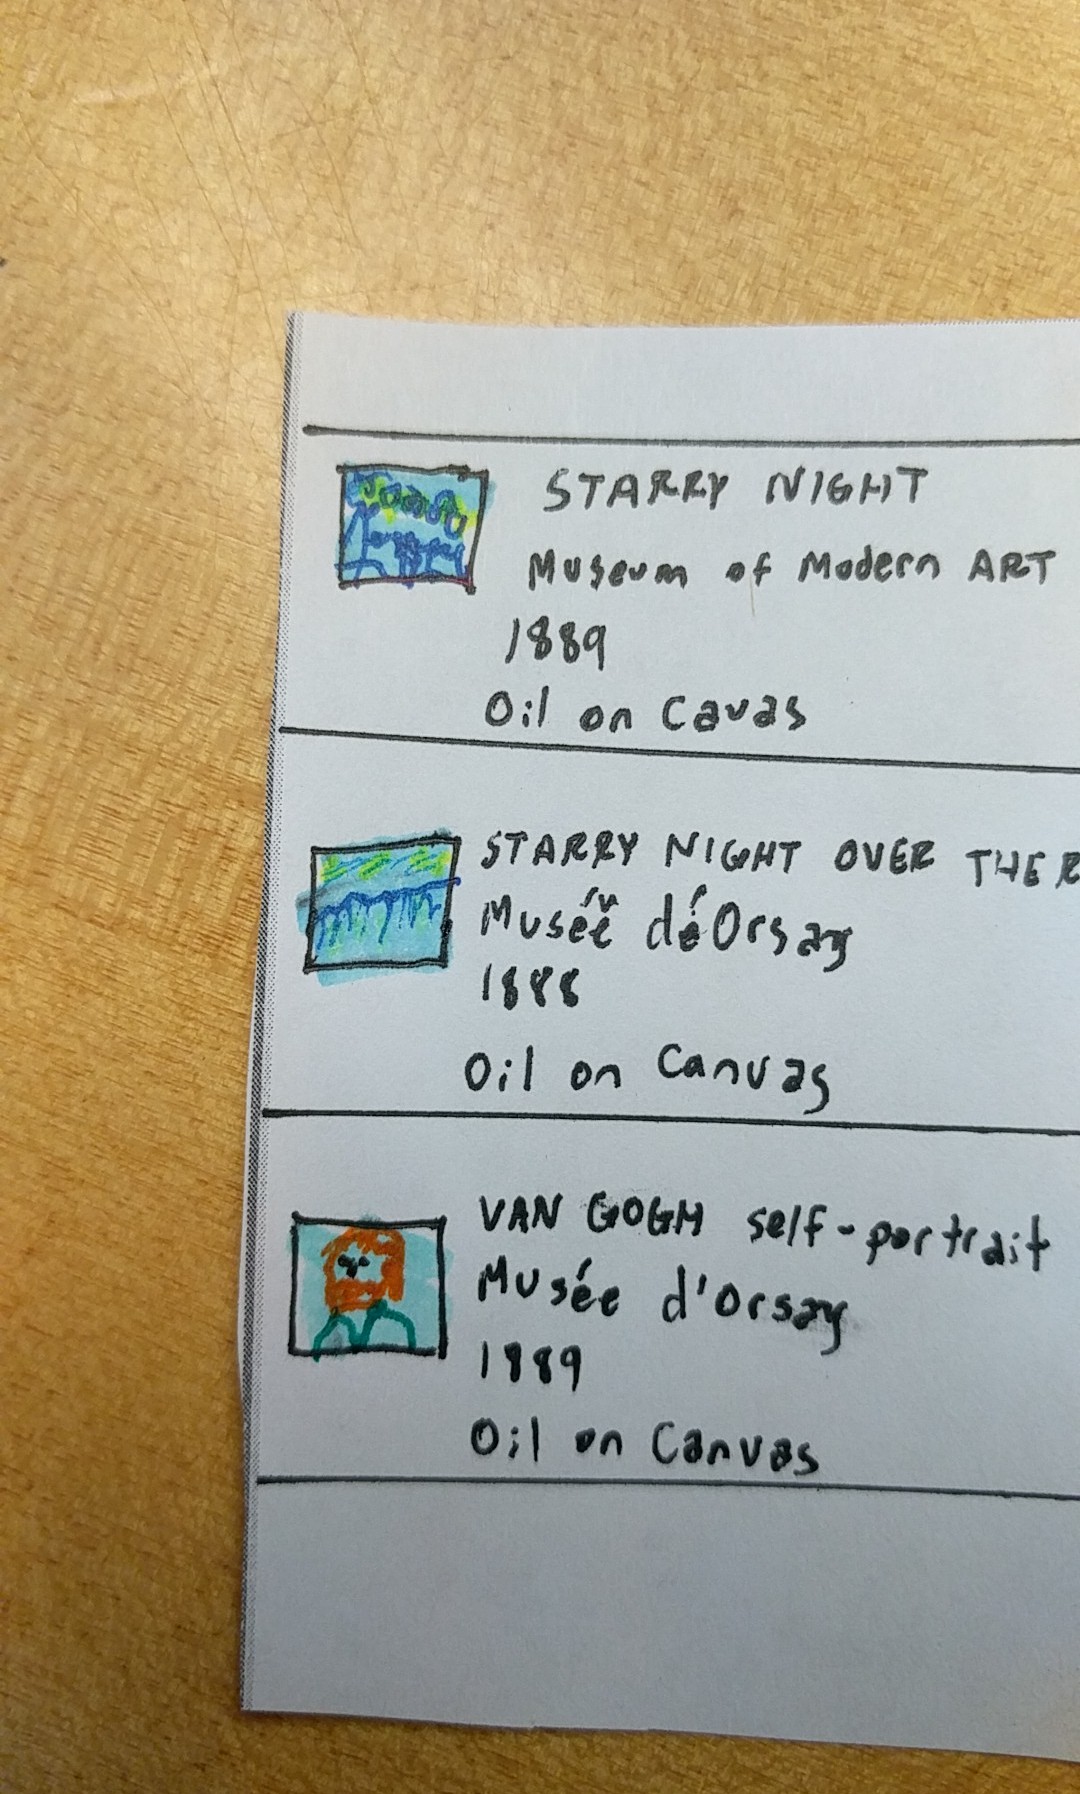 STARRY NIGHT
Museum of Modern ART
1889
Oil on Cavas
STARRY NIGHT OVER THE R
Musée déOrsay
1888
Oil on Canvas
VAN GOGH self-portrait
Musée d'Orsay
1889
Oil on Canvas